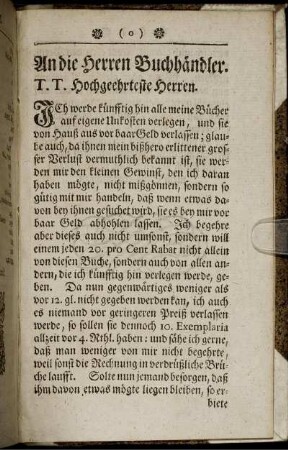 ( o )
An die Herren Buchhändler.
T. T. Hochgeehrteste Herren.
ICh werde künfftig hin alle meine Bücher
auf eigene Unkosten verlegen, und sie
von Hauß aus vor baar Geld verlassen; glau-
be auch, da ihnen mein bißhero erlittener gros-
ser Verlust vermuthlich bekannt ist, sie wer-
den mir den kleinen Gewinst, den ich daran
haben mögte, nicht mißgönnen, sondern so
gütig mit mir handeln, daß wenn etwas da-
von bey ihnen gesuchet wird, sie es bey mir vor
baar Geld abhohlen lassen. Ich begehre
aber dieses auch nicht umsonst, sondern will
einem jeden 20. pro Cent Rabat nicht allein
von diesen Buche, sondern auch von allen an-
dern, die ich künfftig hin verlegen werde, ge-
ben. Da nun gegenwärtiges weniger als
vor 12. gl. nicht gegeben werden kan, ich auch
es niemand vor geringeren Preiß verlassen
werde, so sollen sie dennoch 10. Exemplaria
allzeit vor 4. Rthl. haben: und sähe ich gerne,
daß man weniger von mir nicht begehrte,
weil sonst die Rechnung in verdrüßliche Brü-
che laufft. Solte nun jemand besorgen, daß
ihm davon etwas mögte liegen bleiben, so er-
biete